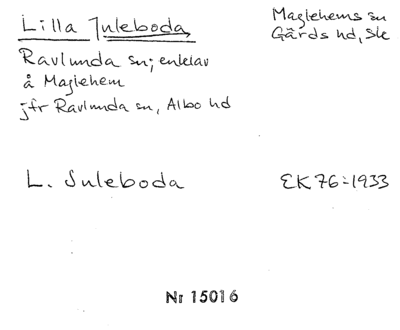 Lilla Juleboda
Maglehems sn
Gärds hd, Sk
Ravlunda sn; enklav
å Maglehem
jfr Ravlunda sn, Albo hd
L. Juleboda
EK 76:1933
Nr 15016